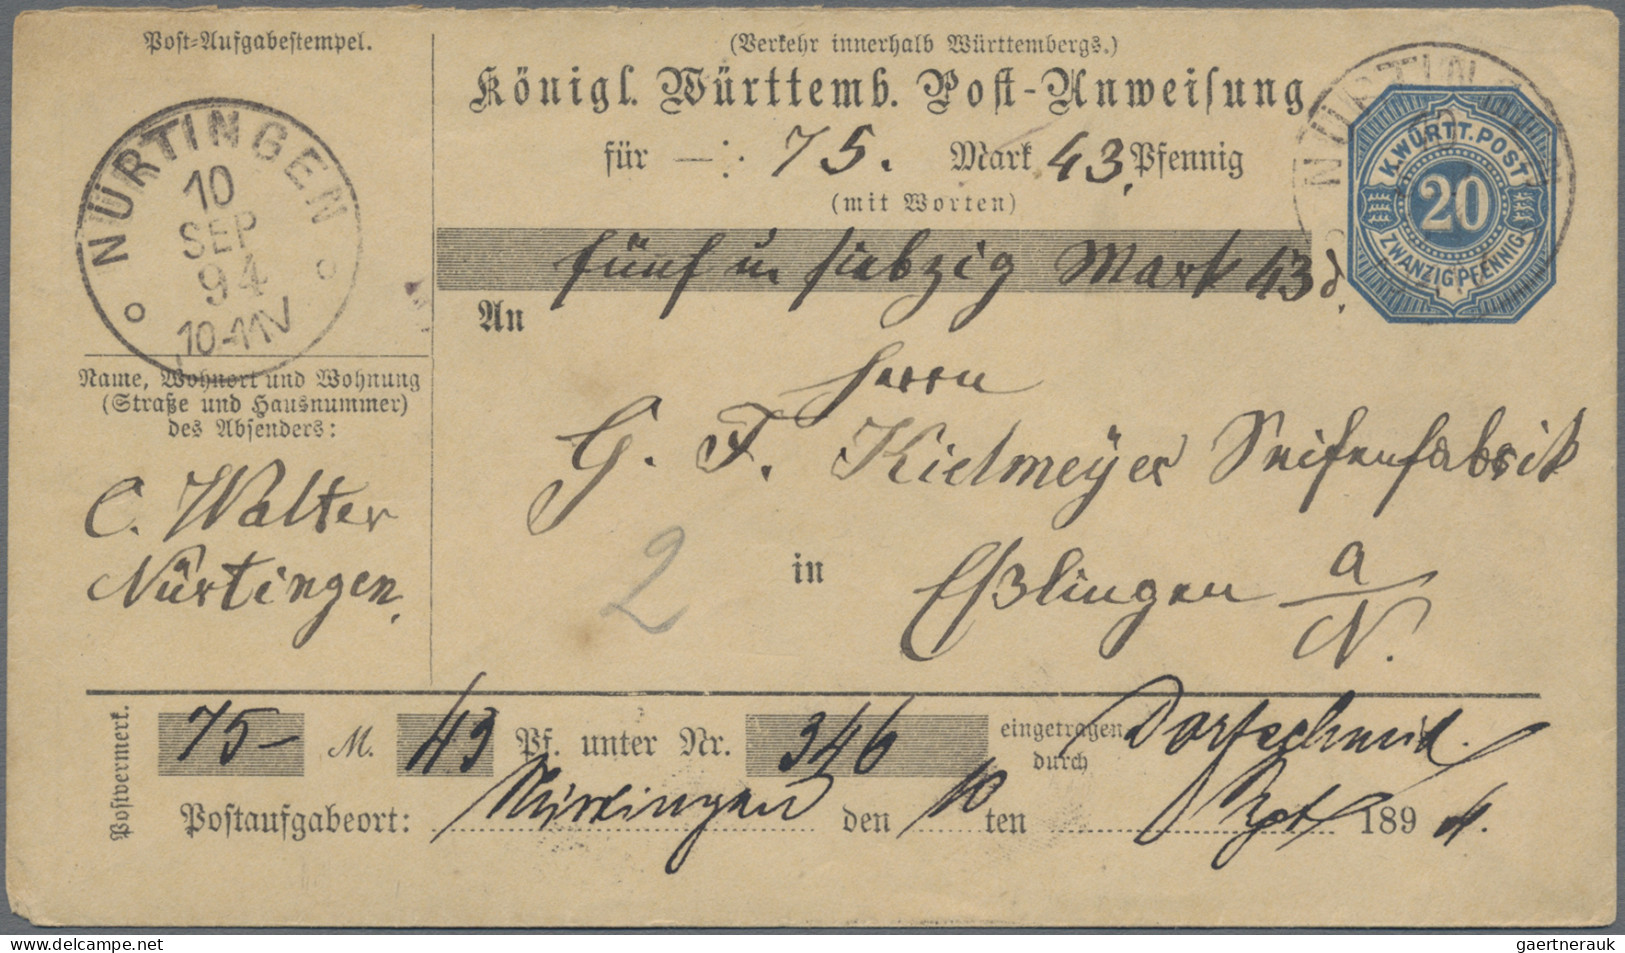 Post-Aufgabestempel.
NÜRTINGEN
10
SEP
94
10-11V
Name, Wohnort und Wohnung
(Straße und Hausnummer)
des Absenders:
C. Walter
Nürtingen.
(Verkehr innerhalb Württembergs.)
Königl. Württemb. Post-Anweisung
für —: 75. Mark 43. Pfennig
(mit Worten)
fünf u siebzig Mark 43 d.
An
Herrn
G. F. Kielmeÿer Seifenfabrik
2 in Eßlingen a/N.
NÜRTINGEN
K. WÜRTT. POST
20
ZWANZIG PFENNIG
Postvermerk.
75- M. 43 Pf. unter Nr. 346 eingetragen
durch
Postaufgabeort: Nürtingen den 10 ten Spt 1894.
gaertnerauk